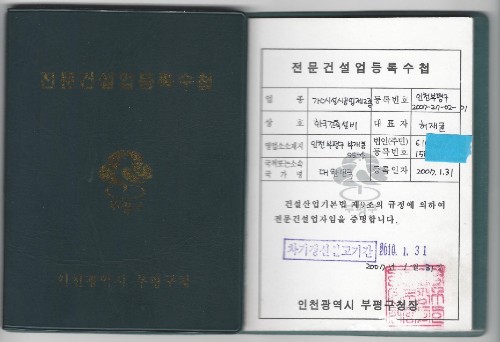 전문건설업등록수첩
인천광역시 부평구청
전문건설업등록수첩
업 종
등록번호
인천부평구
2007-27-02-
상 호
대 표 자
허재균
영업소소재지
인천부평구
법인(주민)
등록번호
국적또는소속
국 가 명
대한민국
등록일자
2007.1.31
건설산업기본법 제9조의 규정에 의하여
전문건설업자임을 증명합니다.
차기갱신신고기간
2010. 1. 31
인천광역시 부평구청장